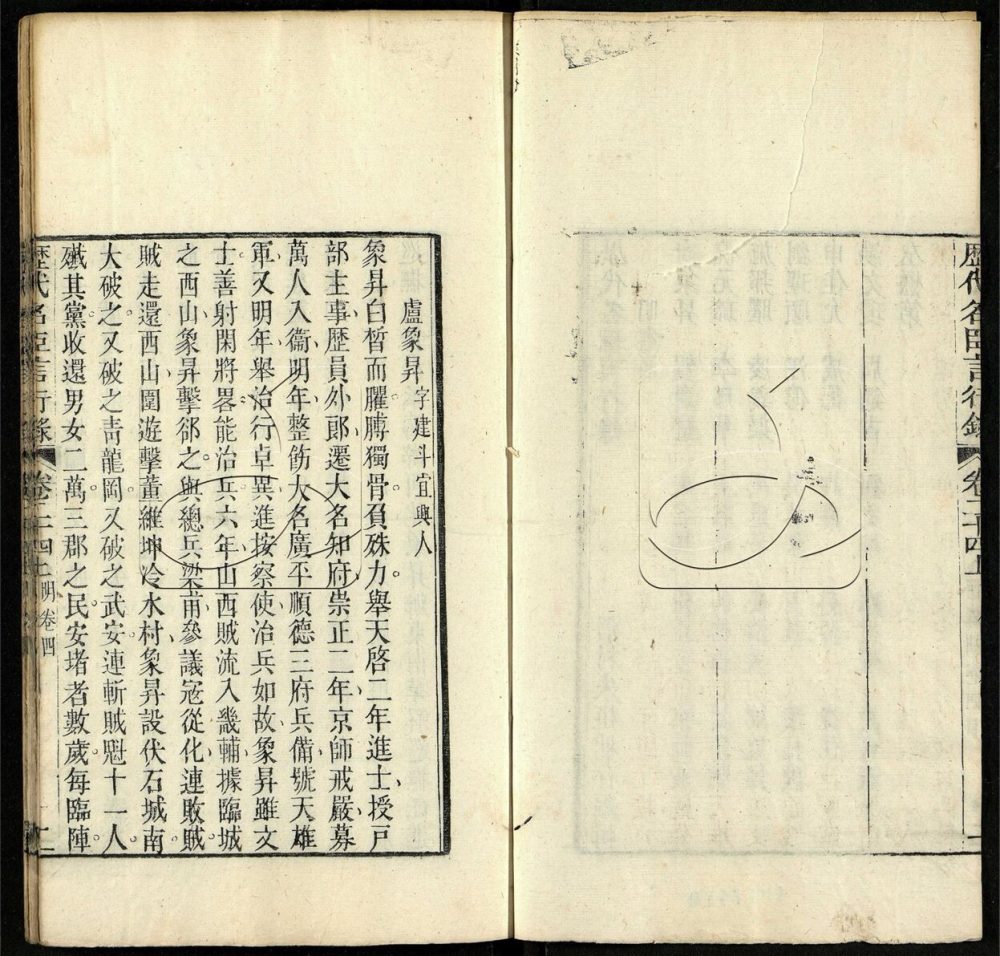 歷代名臣言行錄 卷二十四上
盧象昇 字建斗宜興人
象昇白晳而臞膊獨骨負殊力。舉天啓二年進士、授戸
部主事歷員外郎遷大名知府崇正二年京師戒嚴募
萬人入衞明年整飭大名廣平順德三府兵備號天雄
軍又明年舉治行卓異進按察使治兵如故象昇雖文
士善射閑將畧能治兵六年山西賊流入畿輔據臨城
之西山象昇擊郤之。與總兵梁甫參議寇從化連敗賊
賊走還西山圍遊擊董維坤冷水村、象昇設伏石城南
大破之又破之靑龍岡又破之武安連斬賊魁十一人。
殱其黨收還男女二萬三郡之民安堵者數歲每臨陣
歷代名臣言行錄 卷二十四上 明卷四 二